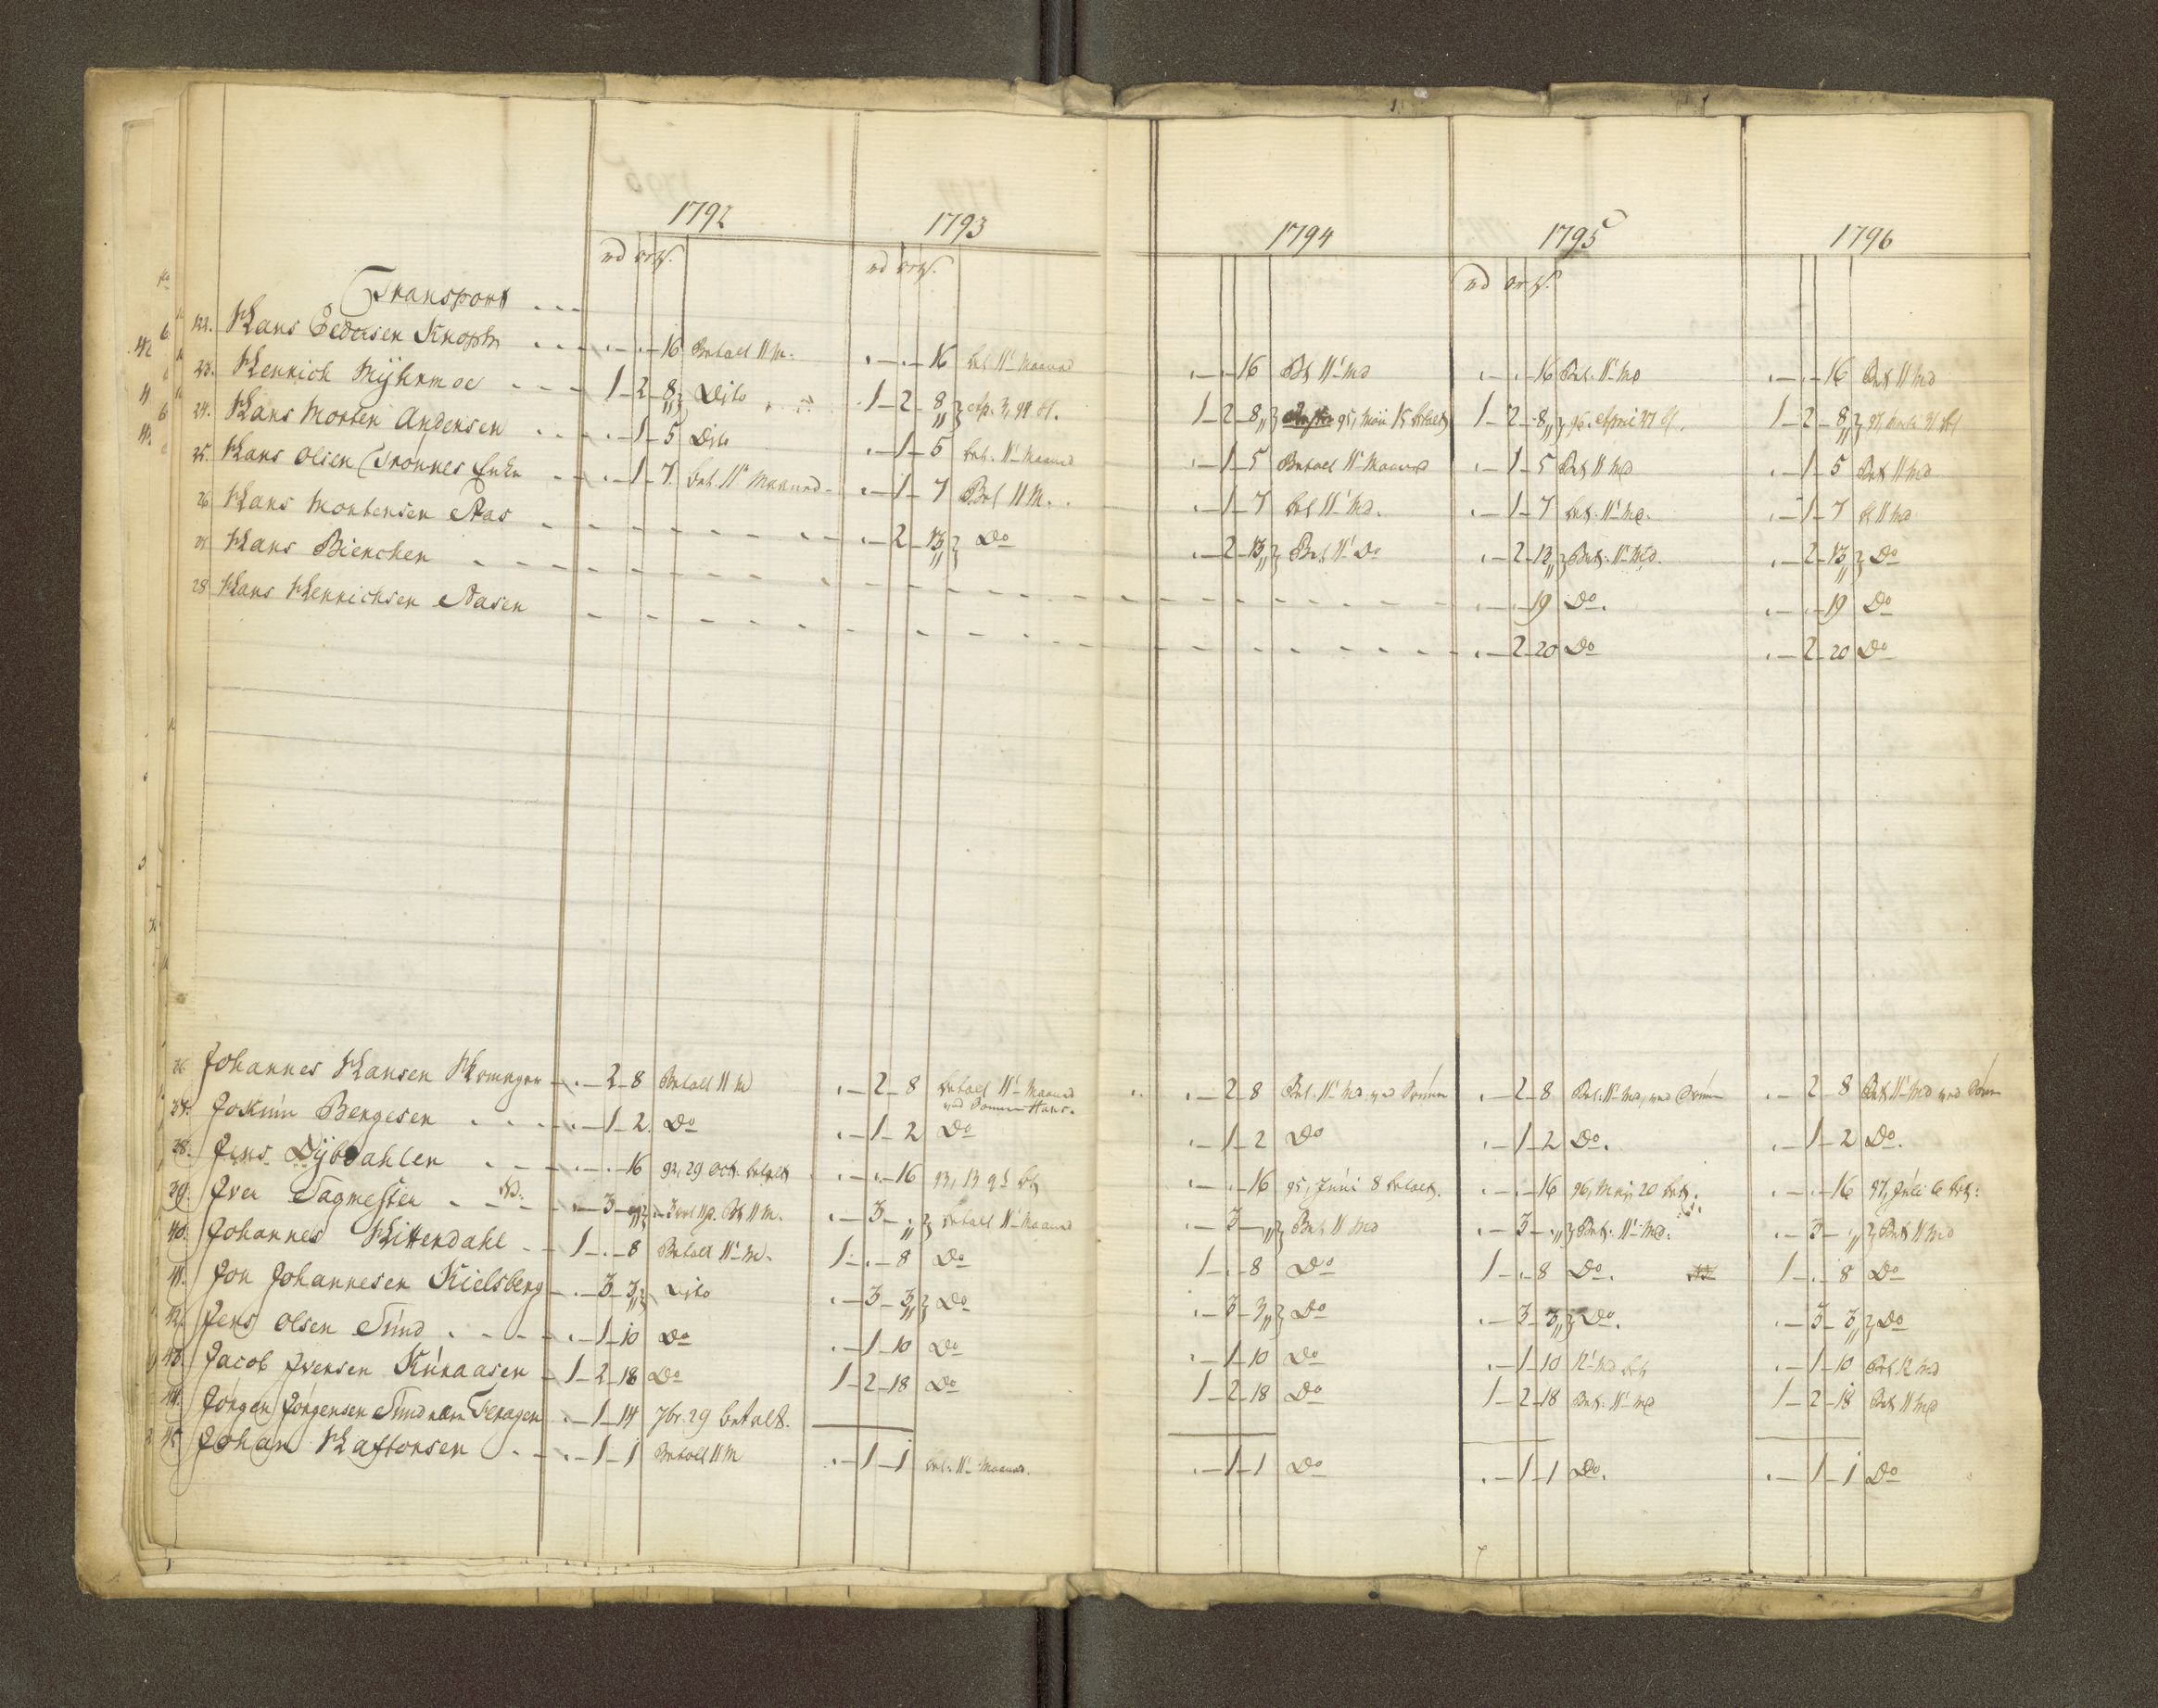 1792 1793 1794 1795 1796
rd ort s. rd ort s. rd ort s.
Transport
122. Hans Pedersen Knoph .-.-16 Betalt 11 M. .-.-16 bet 11' Maaned .-.-16 Bet 11' Md .-.-16 Bet. 11' Md .-.-16 Bet 11 Md
23. Henrich Mÿhrmoe 1-2-8 Dito 1-2-8 Ap. 3, 94 bt. 1-2-8 95, Maii 15 betalt 1-2-8 96. April 27 bt. 1-2-8
24. Hans Morten Andersen .-1-5 Dito .-1-5 bet. 11' Maaned .-1-5 Betalt 11' Maaned .-1-5 Bet 11 Md .-1-5 Bet 11 Md
25. Hans Olsen Trønnes Enke .-1-7. bet. 11' Maaned .-1-7 Bet 11 M. .-1-7 bet 11' Md. .-1-7 bet. 11' Md. .-1-7 bt 11 Md
26 Hans Mortensen Aas .-2-13 Do .-2-13 Bet 11' Do .-2-13 Bet. 11' Md. .-2-13 Do
27 Hans Bienchen .-.-19 Do. .-.-19 Do
28 Hans Henrichsen Aasen .-2-20 Do .-2-20 Do
36 Johannes Hansen .-2-8 Betalt 11 M .-2-8 betalt 11' Maaned
ved Sønnen Hans. .-2-8 Bet. 11' Md. ved Sønnen .-2-8 Bet. 11' Md, ved Sønnen .-2-8 Bet 11' Md ved Sønnen
37. Joskum Bengesen .-1-2. Do .-1-2 Do .-1-2 Do .-1-2 Do. .-1-2 Do.
38. Jens Dÿbdahlen .-.-16 92, 29 Oct. betalt .-.-16 93, 13 bt .-.-16 95, Juni 8 betalt. .-.-16 96, Maj. 20 bet. .-.-16 97, Juli 6 bet:
39. Iver Sagmester .-3- Bt 11 M. .-3-. betalt 11' Maaned .-3- Bet 11 Md .-3-. Bet. 11' Md. .-3-. Bet 11 Md
40. Johannes Hittendahl 1-.-8 Betalt 11' M. 1-.-8 Do 1-.-8 Do 1-.-8 Do. 1-.-8 Do
41. Jon Johannesen Kielsberg .-3-3 Dito .-3-3 Do .-3-3 Do .-3-3 Do. .-3-3 Do
42. Jens Olsen Sund .-1-10 Do .-1-10 Do .-1-10 Do .-1-10 12' Md bet .-1-10 Bet 12 Md
43. Jacob Iversen Kuraasen 1-2-18 Do 1-2-18 Do 1-2-18 Do 1-2-18 Bet. 11' Md 1-2-18 Bet 11 Md
44. Jørgen Jørgensen Sund Feragen .-1-14 7br. 29 betalt.
45 Johan Haftorsen .-1-1 Betalt 11 M .-1-1 bet. 11' Maaned. .-1-1 Do .-1-1 Do. .-1-1 Do